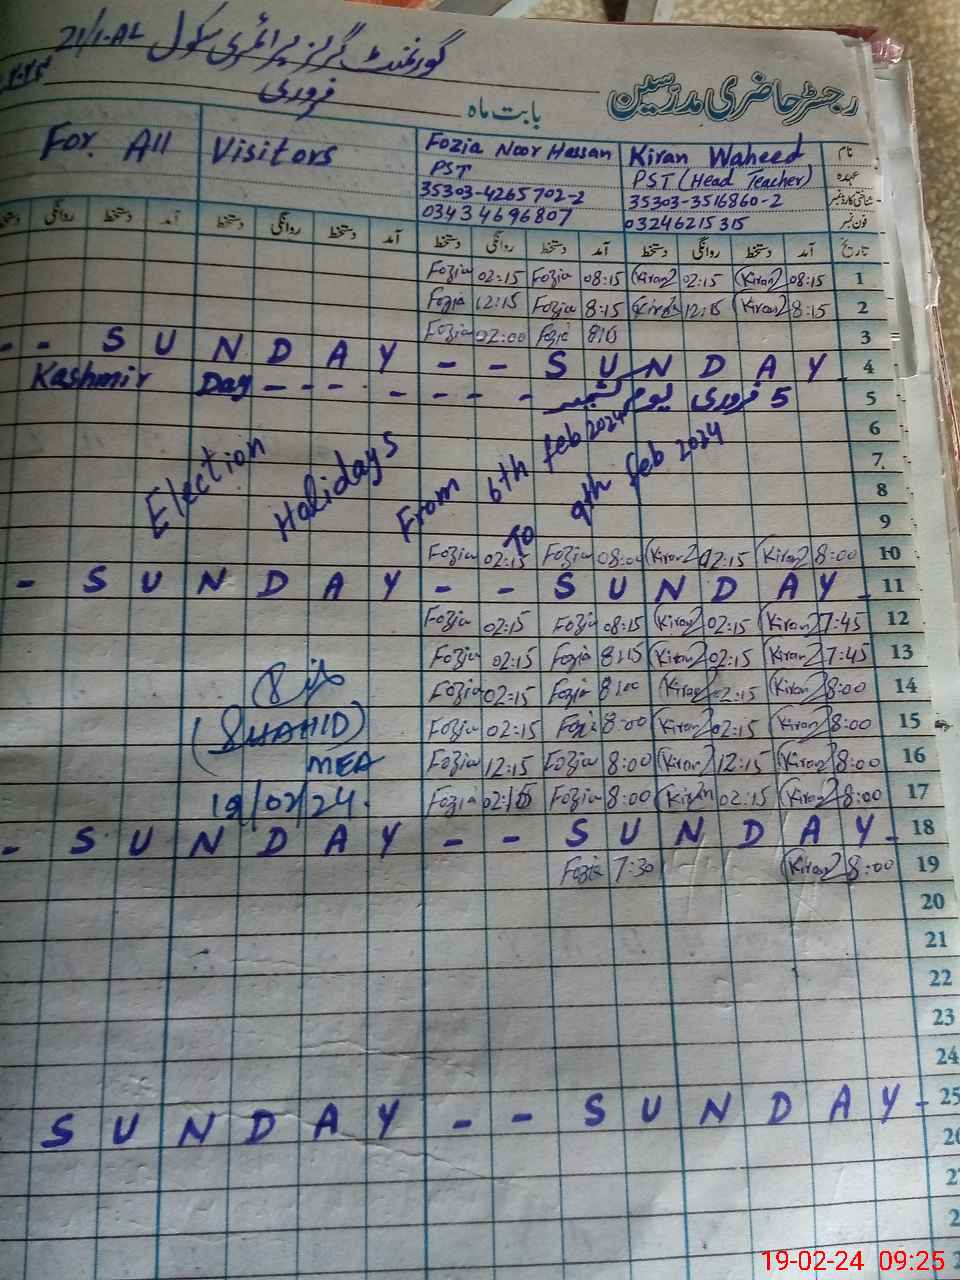 گورنمنٹ گرلز پرائمری سکول 21/1-AL
رجسٹر حاضری مدرسین بابت ماہ فروری
نام Kiran Waheed Fozia Noor Hassan Visitors For All
عہدہ PST (Head Teacher) PST
شناختی کارڈ نمبر 35303-3516860-2 35303-4265702-2
فون نمبر 03246215315 03434696807
تاریخ آمد دستخط روانگی دستخط آمد دستخط روانگی دستخط آمد دستخط روانگی دستخط آمد دستخط روانگی دستخط
1 08:15 Kiran 02:15 Kiran 08:15 Fozia 02:15 Fozia
2 8:15 Kiran 12:15 Kiran 8:15 Fozia 12:15 Fozia
3 8:15 Fozia 02:00 Fozia
4 - - S U N D A Y - - S U N D A Y -
5 5 فروری یوم کشمیر - - - - - - - Kashmir Day
6
7
8
9
Election Holidays From 6th feb 2024 To 9th feb 2024
10 8:00 Kiran 02:15 Kiran 08:00 Fozia 02:15 Fozia
11 - S U N D A Y - - S U N D A Y -
12 7:45 Kiran 02:15 Kiran 08:15 Fozia 02:15 Fozia
13 7:45 Kiran 02:15 Kiran 8:15 Fozia 02:15 Fozia
14 8:00 Kiran 02:15 Kiran 8:00 Fozia 02:15 Fozia
15 8:00 Kiran 02:15 Kiran 8:00 Fozia 02:15 Fozia
16 8:00 Kiran 12:15 Kiran 8:00 Fozia 12:15 Fozia
17 8:00 Kiran 02:15 Kiran 8:00 Fozia 02:15 Fozia
(SHAHID)
MEA
19/02/24.
18 - S U N D A Y - - S U N D A Y -
19 8:00 Kiran 7:30 Fozia
20
21
22
23
24
25 S U N D A Y - - S U N D A Y -
26
19-02-24 09:25